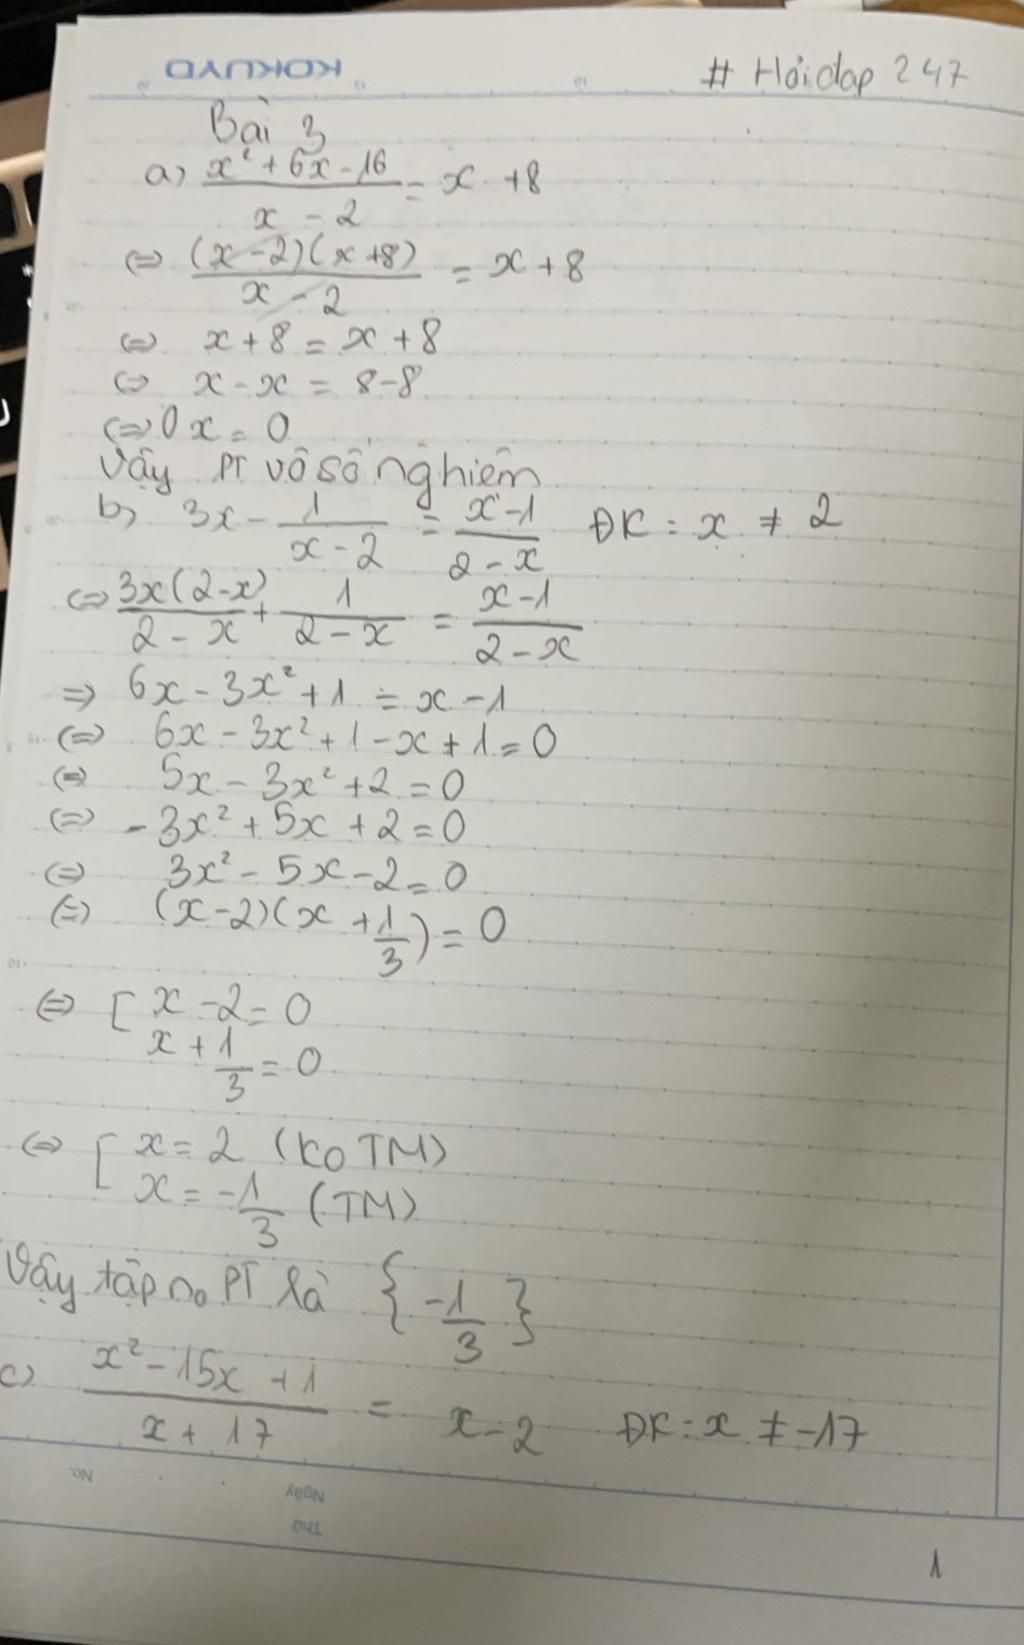 KOKUYO
# Hỏi đap 247
Bài 3
a) \frac{x² + 6x - 16}{x - 2} = x + 8
⇔ \frac{(x - 2)(x + 8)}{x - 2} = x + 8
⇔ x + 8 = x + 8
⇔ x - x = 8 - 8
⇔ 0x = 0
Vậy PT vô số nghiêm
b) 3x - \frac{1}{x - 2} = \frac{x - 1}{2 - x} ĐK : x ≠ 2
⇔ \frac{3x(2 - x)}{2 - x} + \frac{1}{2 - x} = \frac{x - 1}{2 - x}
⇒ 6x - 3x² + 1 = x - 1
⇔ 6x - 3x² + 1 - x + 1 = 0
⇔ 5x - 3x² + 2 = 0
⇔ - 3x² + 5x + 2 = 0
⇔ 3x² - 5x - 2 = 0
⇔ (x - 2)(x + \frac{1}{3}) = 0
⇔ [ x - 2 = 0
x + \frac{1}{3} = 0
⇔ [ x = 2 (Ko TM)
x = -\frac{1}{3} (TM)
Vậy tập no PT là { -\frac{1}{3} }
c) \frac{x² - 15x + 1}{x + 17} = x - 2 ĐK : x ≠ -17
No.
Ngày
Thứ
1